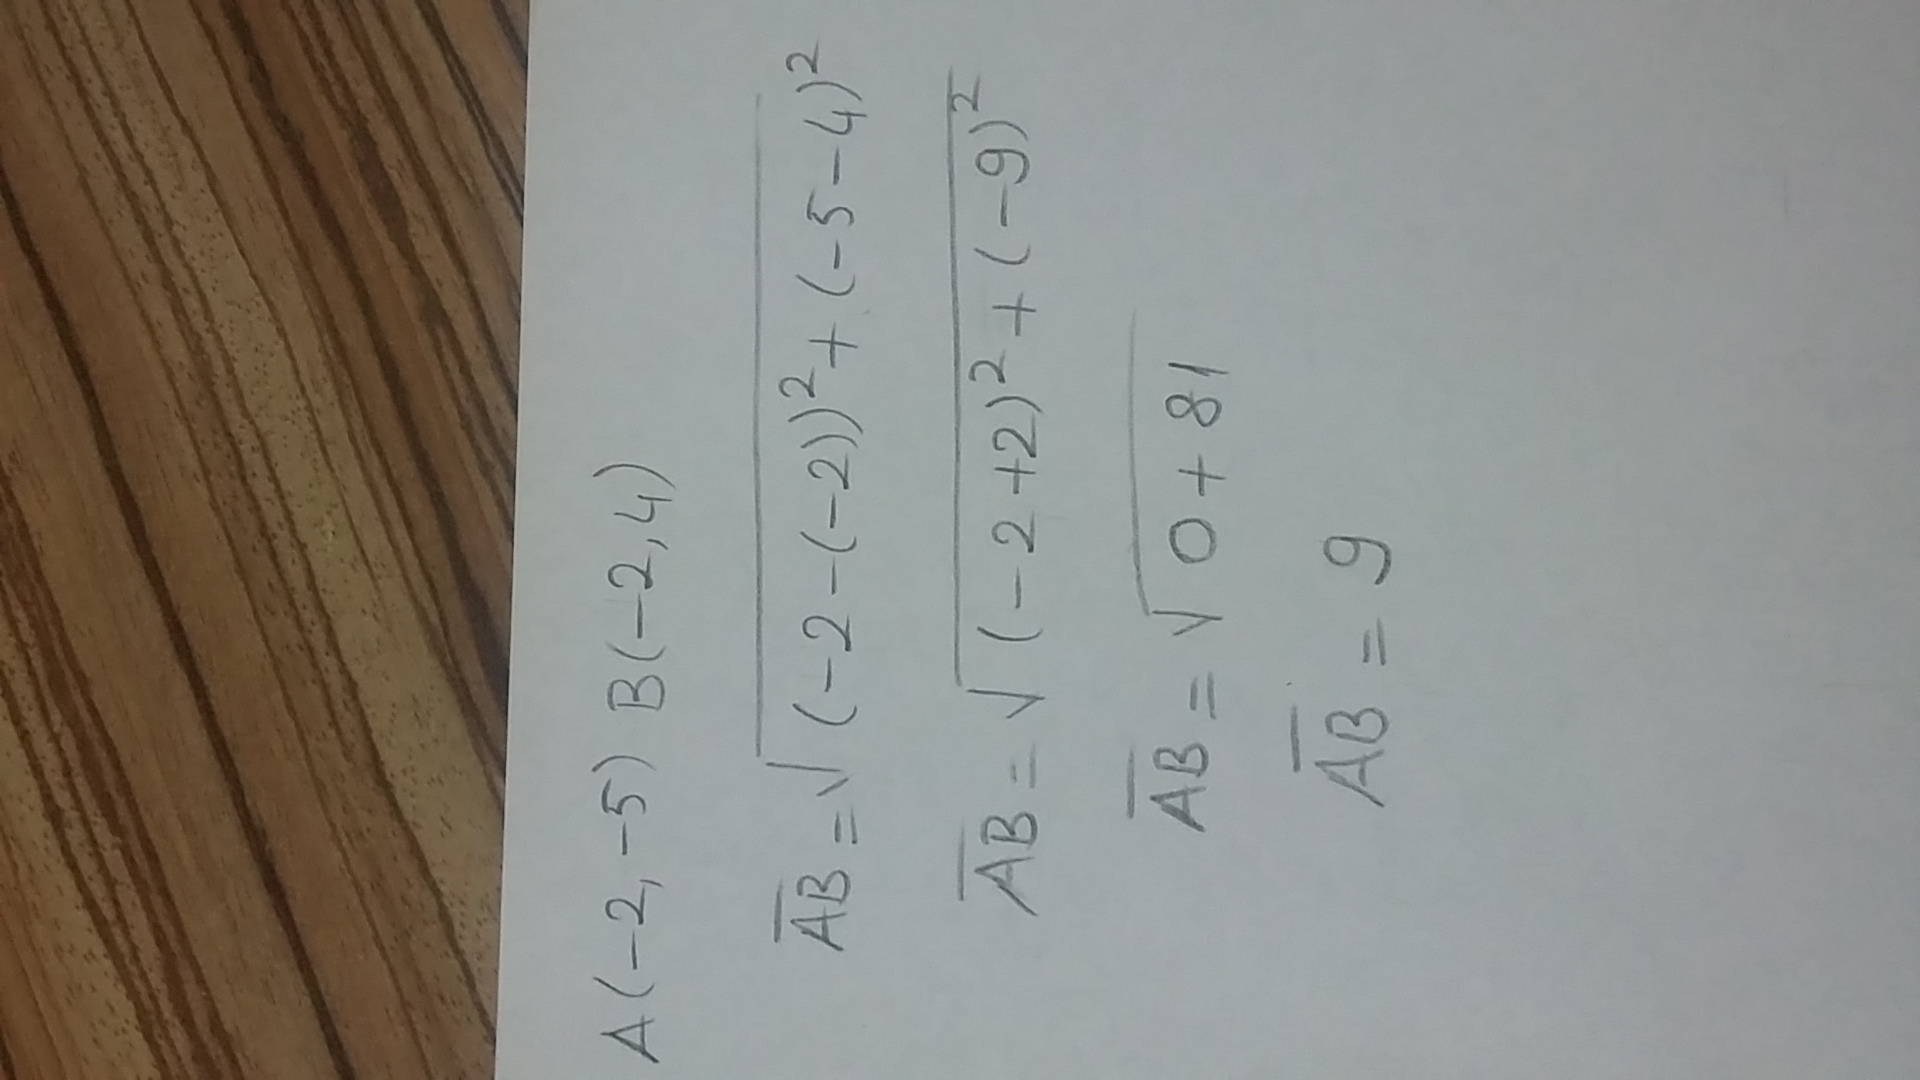 A(-2,-5) B(-2,4)
A̅B̅ = √(-2-(-2))²+(-5-4)²
A̅B̅ = √(-2+2)²+(-9)²
A̅B̅ = √0+81
A̅B̅ = 9